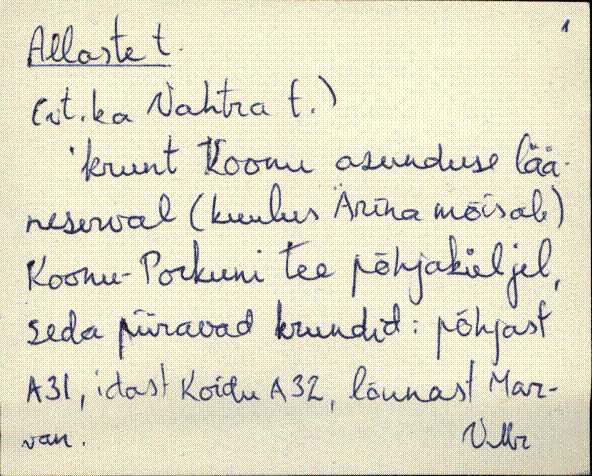 1
Allaste t.
(vt. ka Vahtra t.)
'krunt Koonu asunduse lää-
neserval (kuulus Äriña mõisale)
Koonu-Porkuni tee põhjaküljel,
seda piiravad krundid: põhjast
A31, idast Koidu A32, lõunast Mar-
van.
VMr